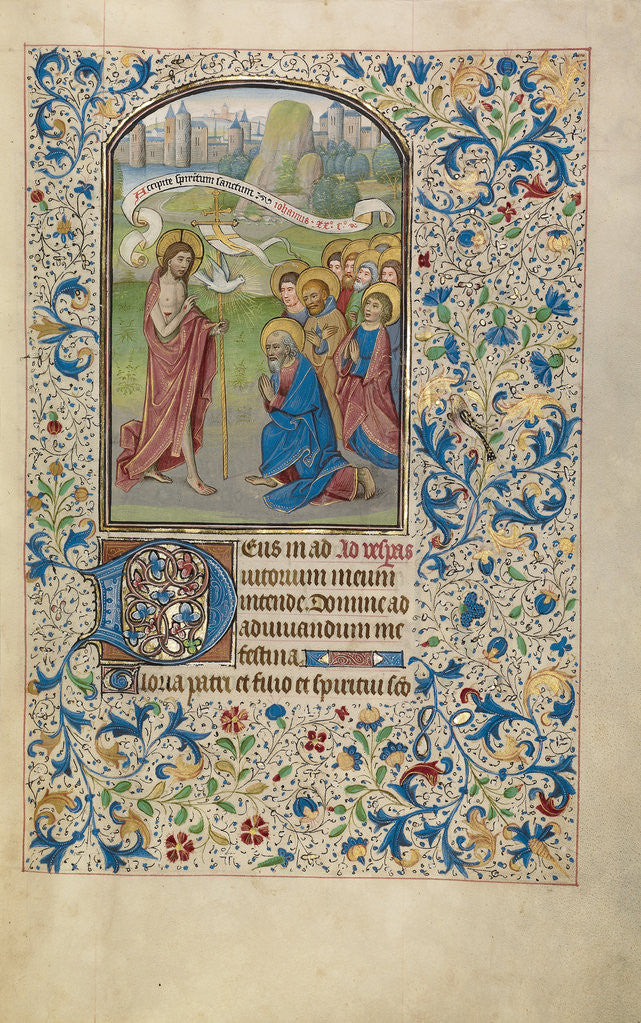 Accipite spiritum sanctum Johannis · xx° c°
Deus in ad Ad vesp̄as
iutorium meum
intende. Domine ad
adiuuandum me
festina
Gloria patri et filio et spiritui sc̄o